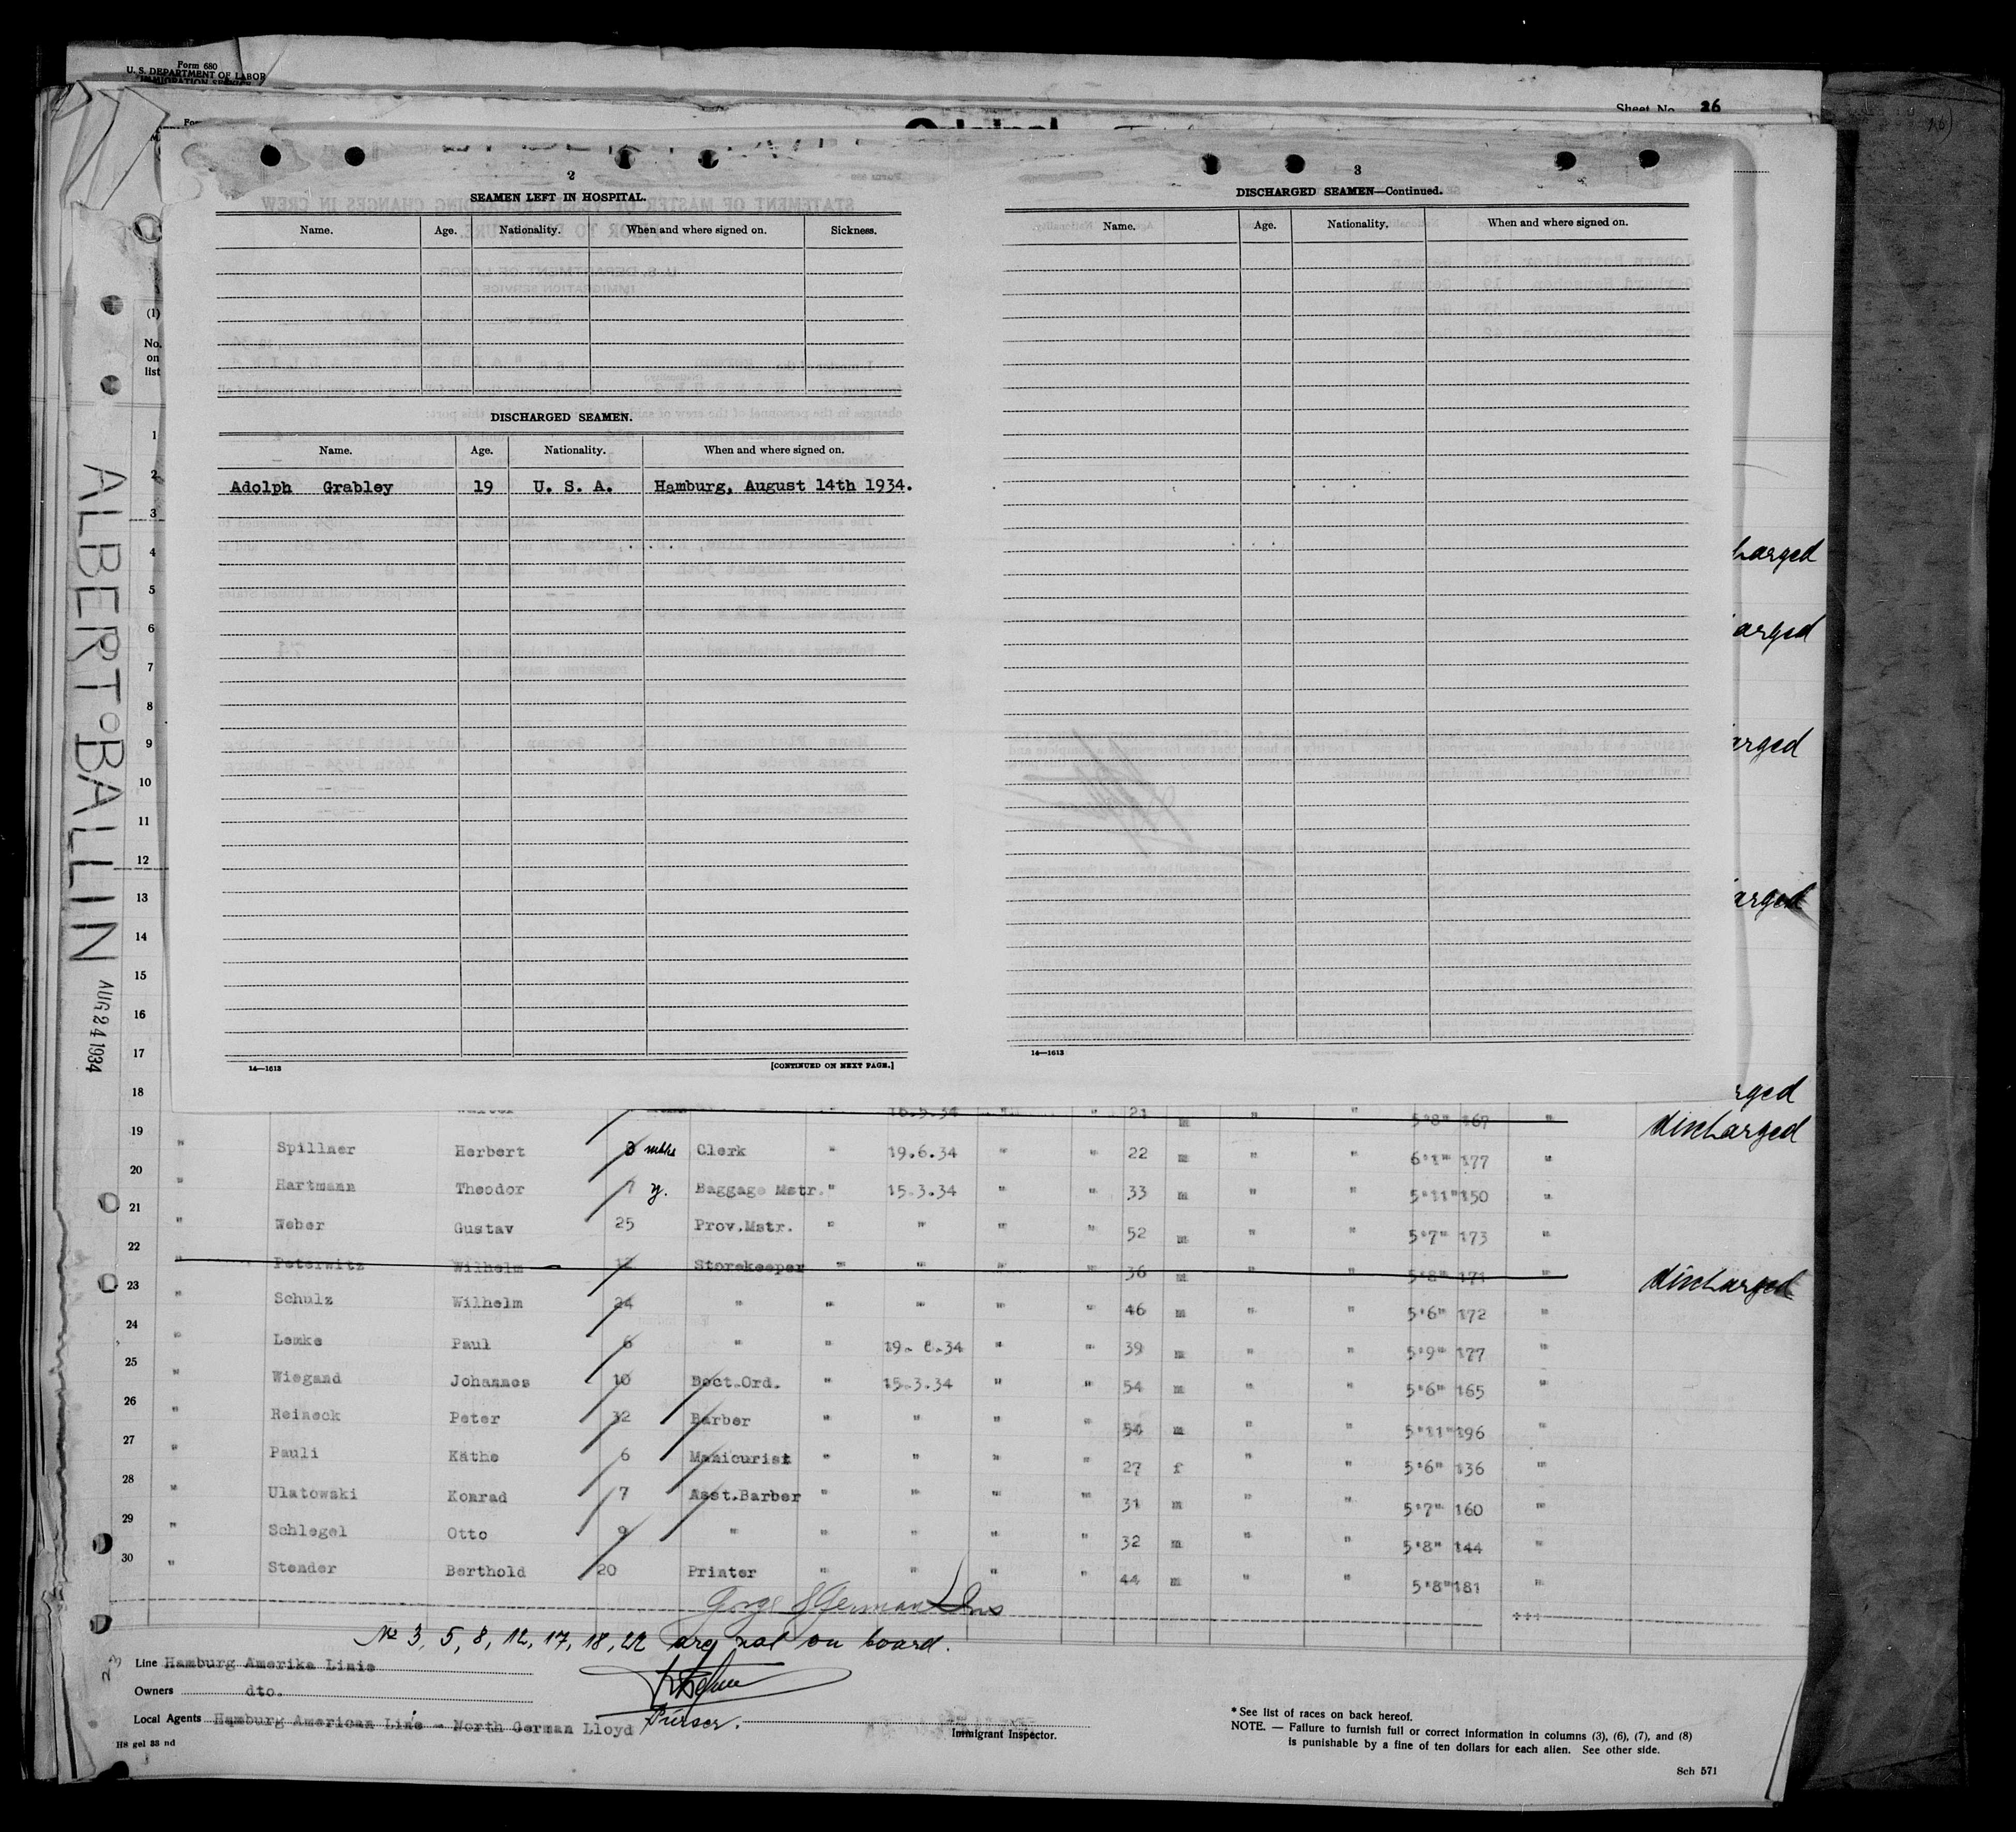 Form 680
U. S. DEPARTMENT OF LABOR
IMMIGRATION SERVICE
Sheet No. 26
Original
2
SEAMEN LEFT IN HOSPITAL.
Name. Age. Nationality. When and where signed on. Sickness.
DISCHARGED SEAMEN.
Name. Age. Nationality. When and where signed on.
Adolph Grabley 19 U. S. A. Hamburg, August 14th 1934.
14—1613 [CONTINUED ON NEXT PAGE.]
3
DISCHARGED SEAMEN—Continued.
Name. Age. Nationality. When and where signed on.
14—1613
ALBERT BALLIN AUG 24 1934
(1)
No.
on
list
1
2
3
4
5
6
7
8
9
10
11
12
13
14
15
16
17
18
harged
arged
arged
arged
rged
Walter 16.5.34 " " 21 m " " 5'8" 167 " discharged
19 " Spillner Herbert 8 mths Clerk " 19.6.34 " " 22 m " " 6'1" 177 "
20 " Hartmann Theodor 7 y. Baggage Mstr. " 15.3.34 " " 33 m " " 5'11" 150 "
21 " Weber Gustav 25 Prov.Mstr. " " " " 52 m " " 5'7" 173 "
22 " Peterwitz Wilhelm 12 Storekeeper " " " " 36 m " " 5'8" 171 " discharged
23 " Schulz Wilhelm 24 " " " " " 46 m " " 5'6" 172 "
24 " Lemke Paul 6 " " 19. 6.34 " " 39 m " " 5'9" 177 "
25 " Wiegand Johannes 10 Doct.Ord. " 15.3.34 " " 54 m " " 5'6" 165 "
26 " Reineck Peter 32 Barber " " " " 54 m " " 5'11" 196 "
27 " Pauli Käthe 6 Manicurist " " " " 27 f " " 5'6" 136 "
28 " Ulatowski Konrad 7 Asst.Barber " " " " 31 m " " 5'7" 160 "
29 " Schlegel Otto 9 " " " " " 32 m " " 5'8" 144 "
30 " Stender Berthold 20 Printer " " " " 44 m " " 5'8" 181 "
+++
No 3, 5, 8, 12, 17, 18, 22 are not on board.
23
Line Hamburg Amerika Linie
Owners dto.
Local Agents Hamburg American Line - North German Lloyd
Purser.
Immigrant Inspector.
H8 gel 33 nd
* See list of races on back hereof.
NOTE. — Failure to furnish full or correct information in columns (3), (6), (7), and (8)
is punishable by a fine of ten dollars for each alien. See other side.
Sch 571